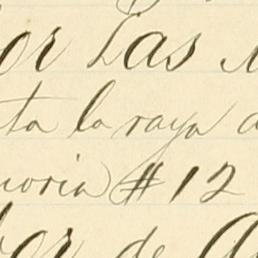 or Las
ta la raya
moria #12
or de